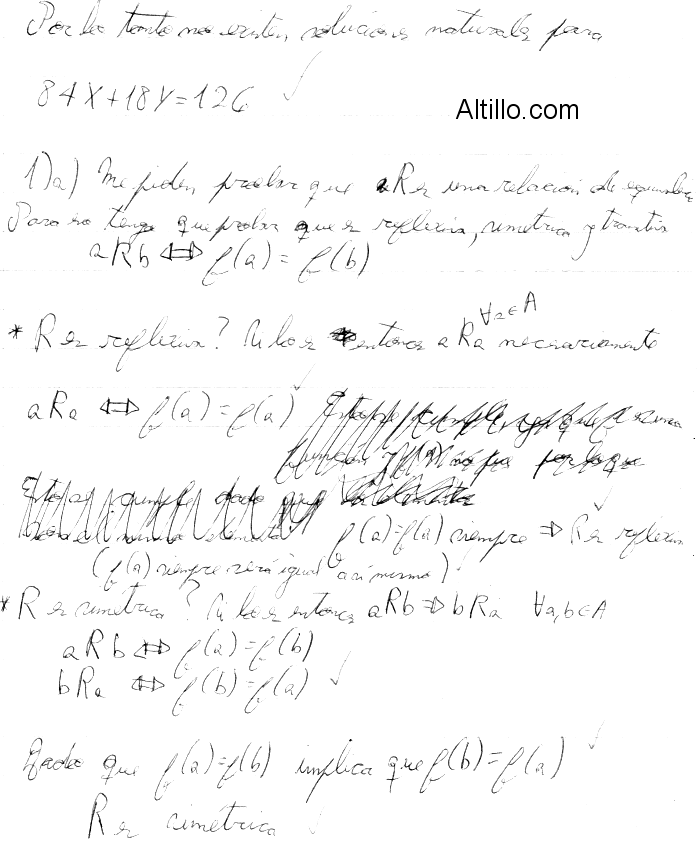 Por lo tanto no existen soluciones naturales para
84X+18Y=126
Altillo.com
1)a) Me piden probar que aRb es una relación de equivalencia
Para eso tengo que probar que es reflexiva, simetrica y transitiva
aRb ⇔ f(a) = f(b)
* R es reflexiva? Si lo es entonces aRa ∀a∈A necesariamente
aRa ⇔ f(a) = f(a)
f(a)=f(a) siempre ⇒ R es reflexiva
(f(a) siempre será igual a si misma)
* R es simétrica? Si lo es entonces aRb ⇒ bRa ∀a,b∈A
aRb ⇔ f(a)=f(b)
bRa ⇔ f(b)=f(a)
Dado que f(a)=f(b) implica que f(b)=f(a)
R es simétrica